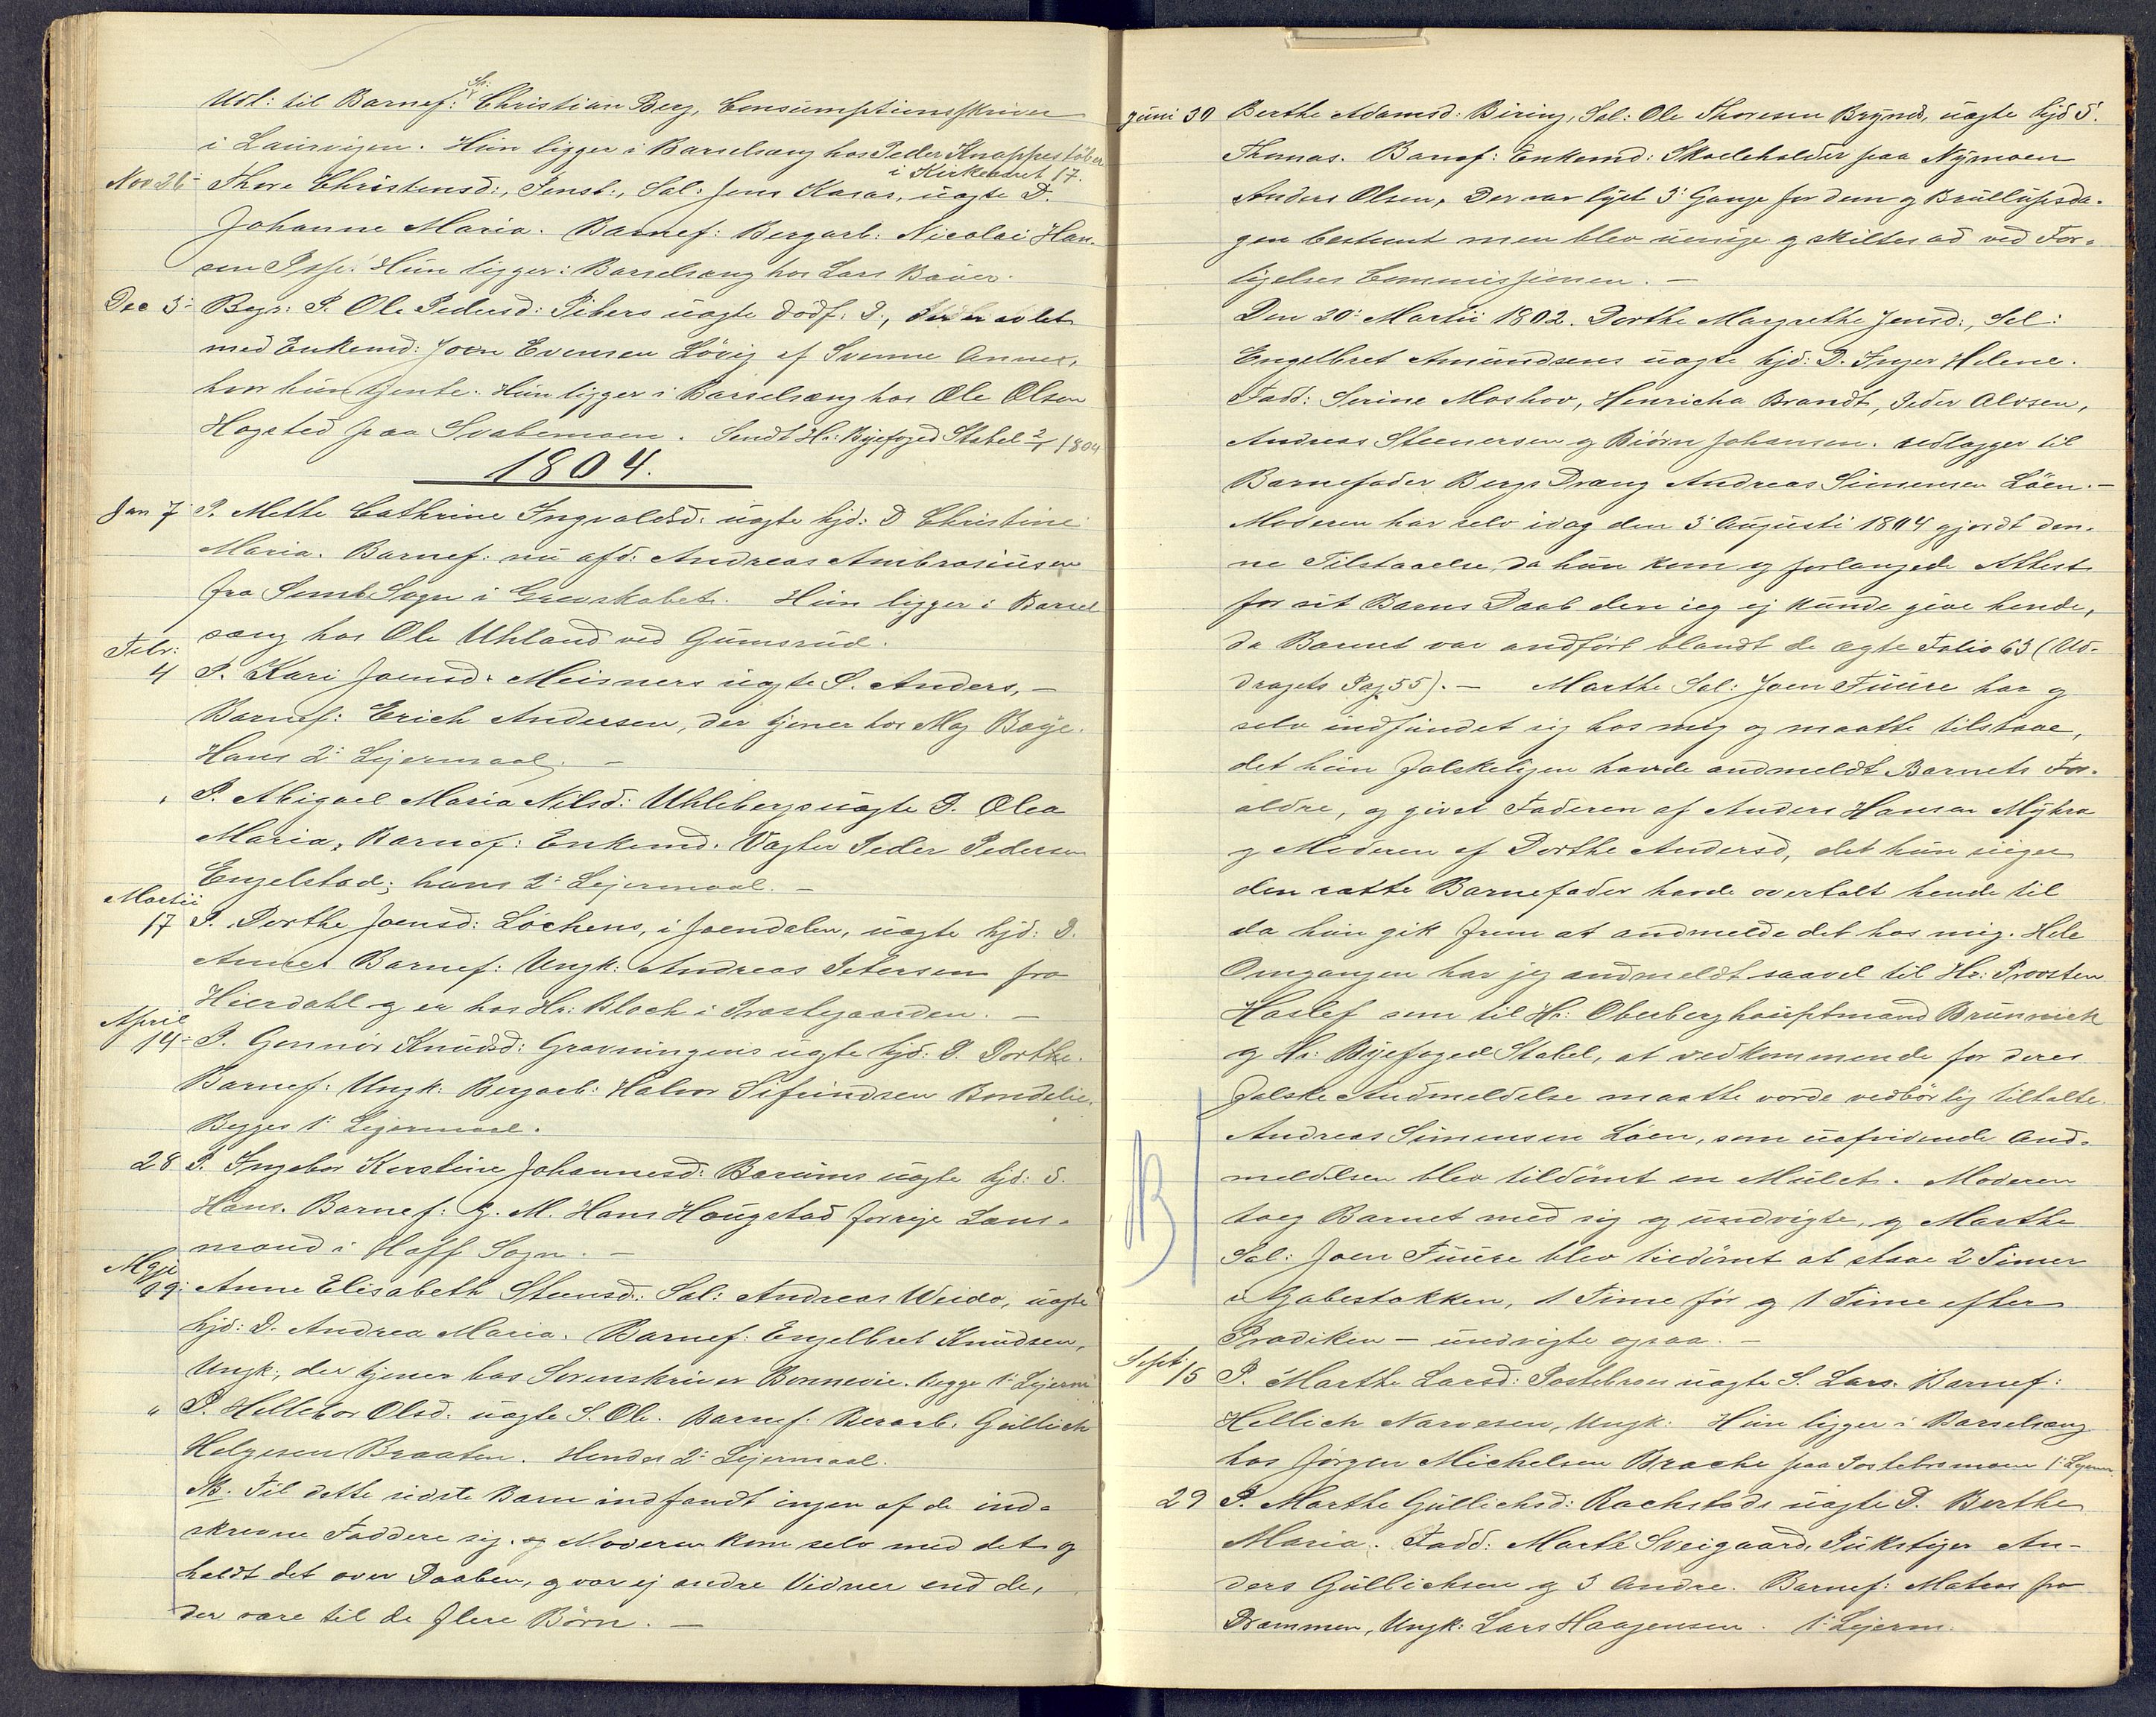 Udl: til Barnef: Sr: Christian Berg, Consumptionsskriver
i Laurvigen. Hun ligger i Barselsæng hos Peder Knappestøber
i Kirkeadret 17.
Nov 26 Thore Christensd:, Jensb:, Sal: Jens Kasas, uægte D.
Johanne Maria. Barnef: Bergarb: Nicolai Han-
sen Hun ligger i Barselsæng hos Lars Bauer.
Dec 3 Begr: P. Ole Pedersd: Pibers uægte dødf. D., der er avlet
med Enkemd: Joen Evensen Løvig af Svenne Annex,
hvor hun tjente. Hun ligger i Barselsæng hos Ole Olsen
Hogsted paa Svabemoen. Sendt Hr: Byefoged Stabel 2/1 1804
1804.
Jan 7 P. Mette Cathrine Ingvaldsd: uægte hjd: D Christine
Maria. Barnef: nu afd: Andreas Ambrosiusen
fra Semb Sogn i Grevskabet. Hun ligger i Barsel
sæng hos Ole Uhland ved Gumsrud.
Febr:
4 P. Kari Joensd: Meisners uægte S. Anders, —
Barnef: Erich Andersen, der tjener hos Mag Baye.
Hans 2: Lejermaal. —
" P. Abigael Maria Nilsd: Uhlebergs uægte D. Olea
Maria, Barnef: Enkemd. Vægter Peder Pedersen
Engelstad; hans 2: Lejermaal. —
Martii
17 P. Dorthe Joensd: Løchens, i Joendalen, uægte hjd: D.
Anne Barnef: Ungk: Andreas Petersen fra
Hierdahl og er hos Hr: Bloch i Præstegaarden. —
April
14 P. Gunnor Knudsd: Gravningens uægte hjd: D. Dorthe.
Barnef: Ungk: Bergarb: Halvor Sifuindsen Bondelie.
Begges 1: Lejermaal.
28 P. Ingebor Kerstine Johannesd: Bærums uægte hjd: S.
Hans. Barnef: G. M. Hans Haugstad forrige Læns-
mand i Haff Sogn. —
Maji
19: Anne Elisabeth Steensd: Sal: Andreas Weido, uægte
hjd: D. Andrea Maria. Barnef: Engelbret Knudsen,
Ungk:, der tjener hos Sorenskriver Bonnevie. begge 1: Lejerm:
" P. Hellebor Olsd: uægte S. Ole. Barnef: Berarb. Gullich
Helgesen Braaten. Hendes 2: Lejermaal.
NB. Til dette sidste Barn indfandt ingen af de ind-
skrevne Faddere sig. og Moderen kom selv med det og
holdt det over Daaben, og var ej andre Vidner end de,
der vare til de flere Børn. —
Juni 30 Berthe Adamsd: Biring, Sal: Ole Thoresen Brynds, uægte hjd S.
Thomas. Barnef: Enkemd: Skoleholder paa Nymoen
Anders Olsen, Der var lyst 3: Gange for dem og Brullupsda-
gen bestemt men blev uenige og skiltes ad ved For-
ligelses Commissionen. —
Den 20: Martii 1802. Dorthe Margrethe Jensd:, Sal:
Engelbret Amundsens uægte hjd: D. Inger Helene.
Fadd: Serine Moshov, Henricha Brandt, Peder Alvsen,
Andreas Steenersen og Biørn Johansen. udlagger til
Barnefader Bergs Dreng Andreas Simensen Løen. —
Moderen har selv idag den 3: Augusti 1804 gjordt den-
ne Tilstaaelse, da hun kom og forlangede Attest
for sit Barns Daab den ieg ej kunde give hende,
da Barnet var andført blandt de ægte Folio 63 (Ud-
dragets Pag 55). — Marthe Sal: Joen Fuure har og
selv indfundet sig hos mig og maatte tilstaae,
det hun falskeligen havde andmeldt Barnets For-
ældre, og givet Faderen af Anders Hansen Myhra
og Moderen af Dorthe Andersd, det hun siger
den rætte Barnefader havde overtalt hende til
da hun gik frem at andmelde det hos mig. Hele
Omgangen har jeg andmeldt saavel til Hr: Provsten
Haslef som til Hr: Oberberghauptmand Brunnick
og Hr: Byefoged Stabel, at vedkommende for deres
falske Andmeldelse maatte vorde vedbørlig tiltalte
NB Andreas Simensen Løen, som uafvidende And-
meldelsen blev tildømt en Mulct. Moderen
toeg Barnet med sig og undvigte, og Marthe
Sal: Joen Fuure blev tildømt at staae 2 Timer
i Gabestokken, 1 Time før og 1 Time efter
Prædiken — undvigte ogsaa. —
Sept:
15 P. Marthe Larsd: Postebroes uægte S. Lars. Barnef:
Hellich Narvesen, Ungk: Hun ligger i Barselsæng
hos Jørgen Michelsen Brache paa Postebromoen 1: Lejerm.
29 P. Marthe Gullichsd: Rachstads uægte D. Berthe
Maria. Fadd: Marthe Sveigaard, Pukstiger An-
ders Gullichsen og 3 andre. Barnef: Matros fra
Drammen, Ungk: Lars Haagensen. 1: Lejerm.